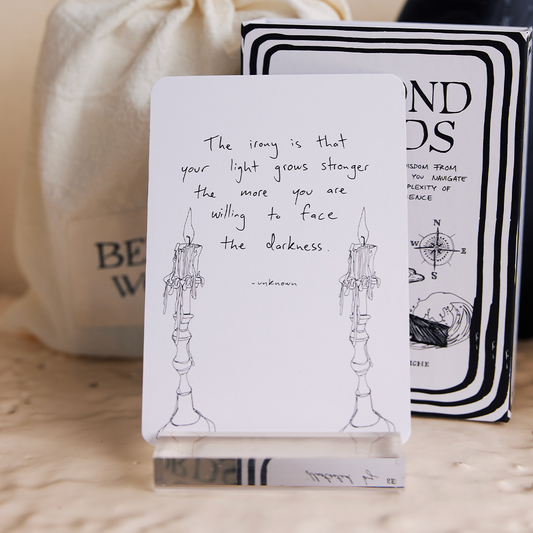 The irony is that
your light grows stronger
the more you are
willing to face
the darkness.
-unknown
OND
DS
ISDOM FROM
YOU NAVIGATE
PLEXITY OF
IENCE
N
W E
S
BE
W